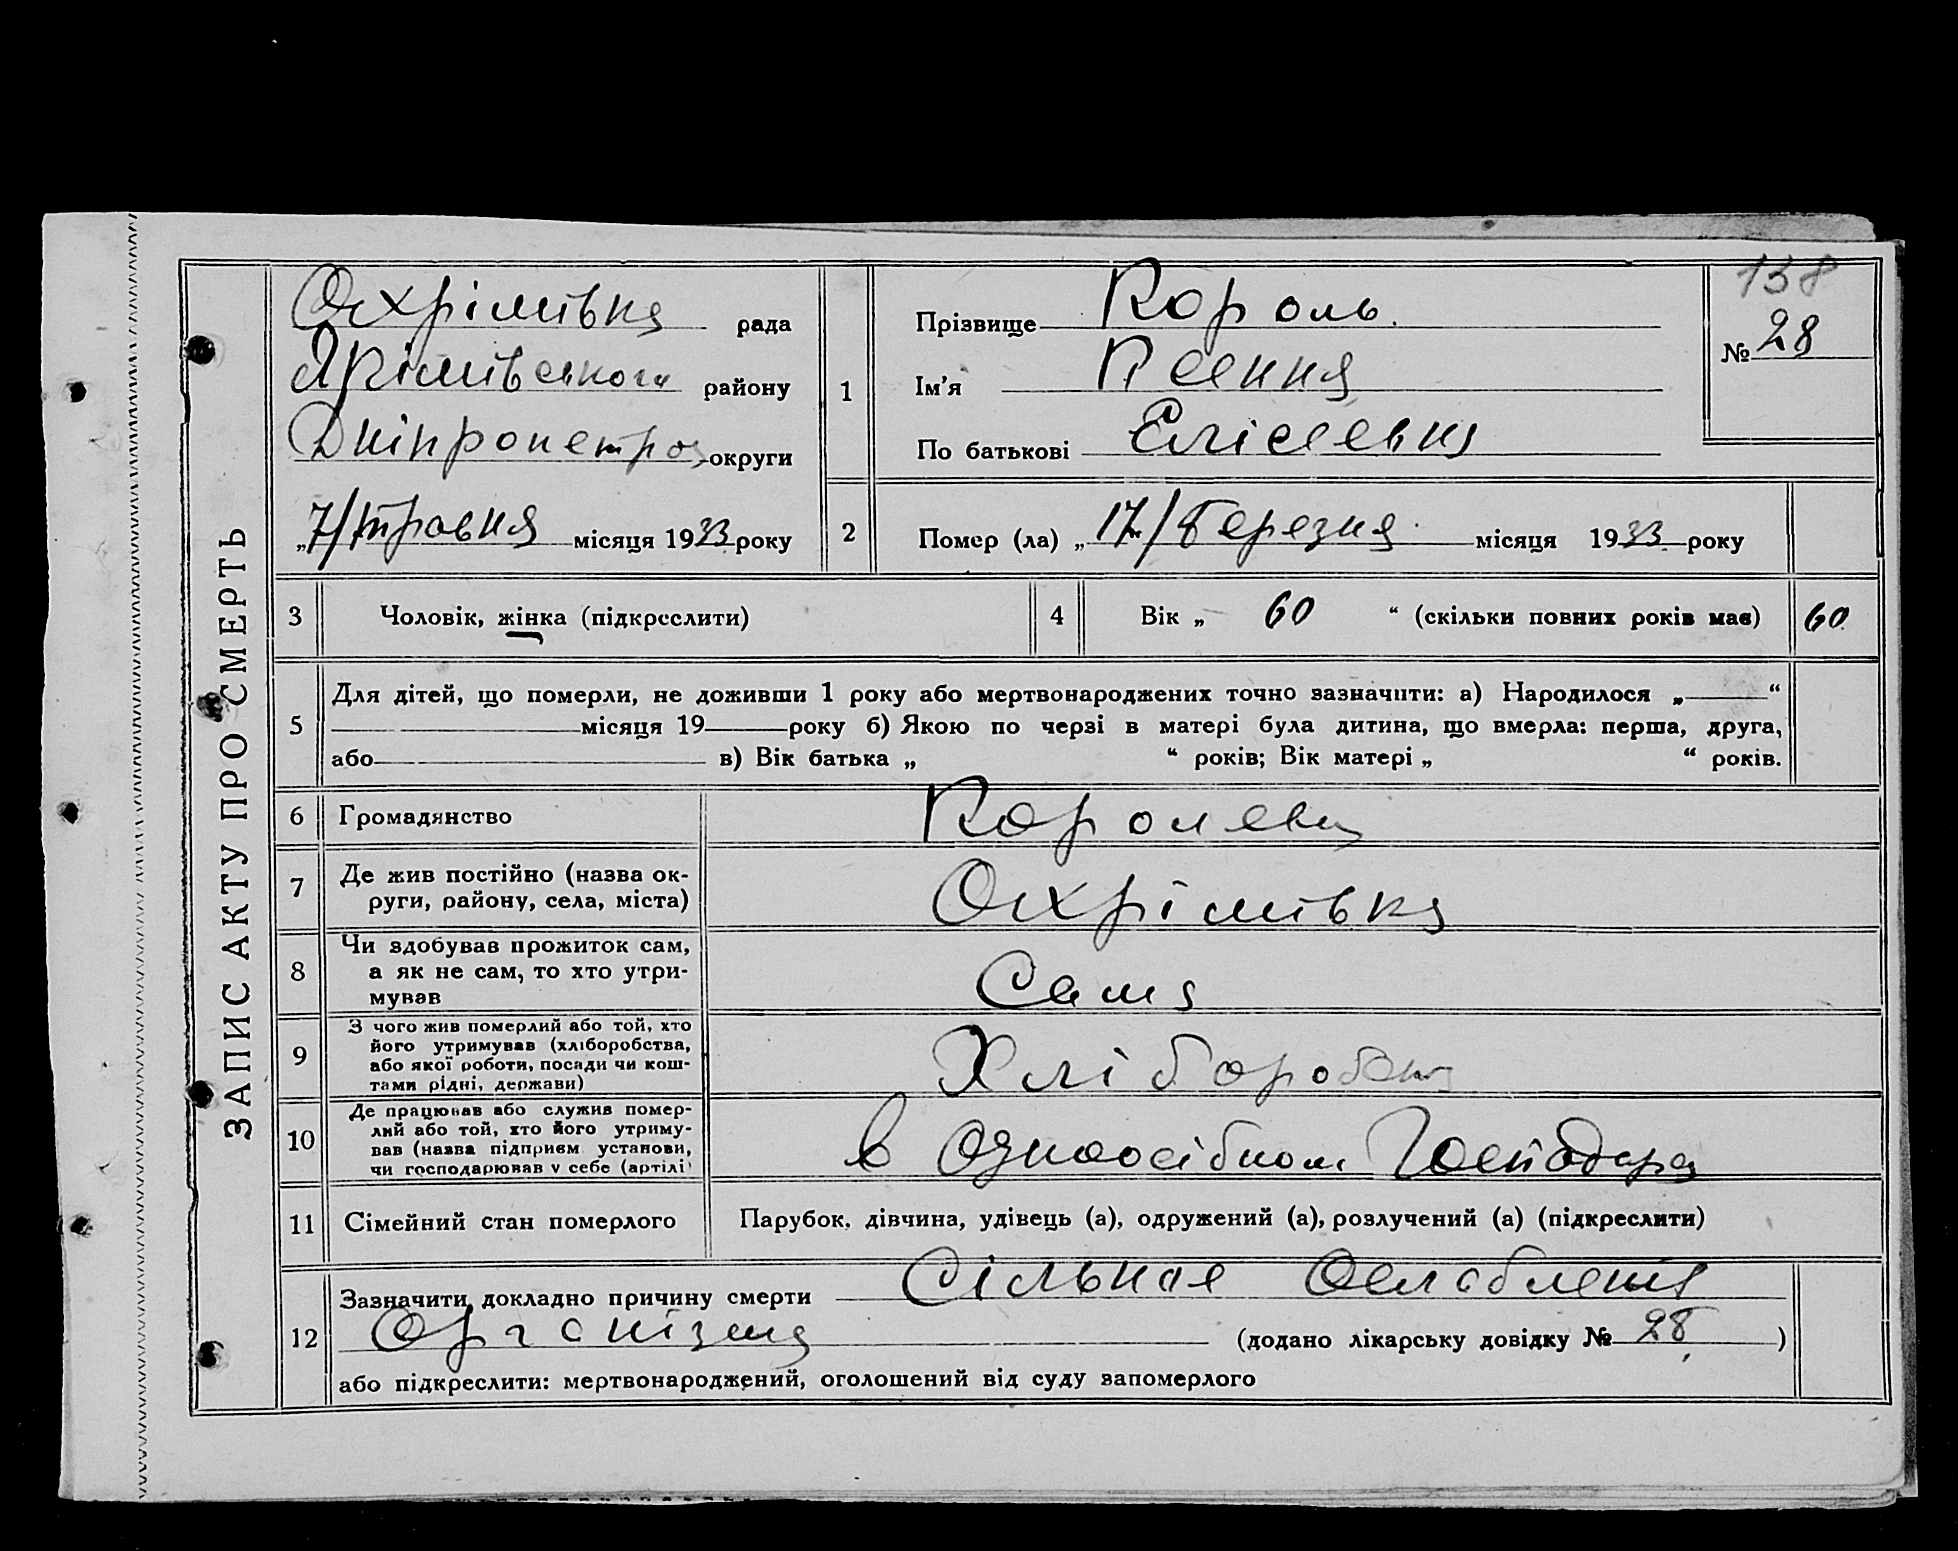 ЗАПИС АКТУ ПРО СМЕРТЬ
138
№ 28
Охрімівка рада
Якімівського району
Дніпропетров округи
„7/травня місяця 1933 року
1
Прізвище Король
Ім'я Ксения
По батькові Елісеевна
2 Помер (ла) „17/березня місяця 1933 року
3 Чоловік, жінка (підкреслити)
4 Вік „ 60 “ (скільки повних років має) 60
5 Для дітей, що померли, не доживши 1 року або мертвонароджених точно зазначити: а) Народилося „ “
місяця 19 року б) Якою по черзі в матері була дитина, що вмерла: перша, друга,
або в) Вік батька „ “ років; Вік матері „ “ років.
6 Громадянство
7 Де жив постійно (назва ок-
руги, району, села, міста) Охрімівка
8 Чи здобував прожиток сам,
а як не сам, то хто утри-
мував Сама
9 З чого жив померлий або той, хто
його утримував (хліборобства,
або якої роботи, посади чи кош-
тами рідні, держави)
10 Де працював або служив помер-
лий або той, хто його утриму-
вав (назва підприєм установи,
чи господарював у себе (артілі)
в одноосібном Господара
11 Сімейний стан померлого Парубок, дівчина, удівець (а), одружений (а), розлучений (а) (підкреслити)
12 Зазначити докладно причину смерти Сільное Ослабления
Организма (додано лікарську довідку № 28 )
або підкреслити: мертвонароджений, оголошений від суду запомерлого